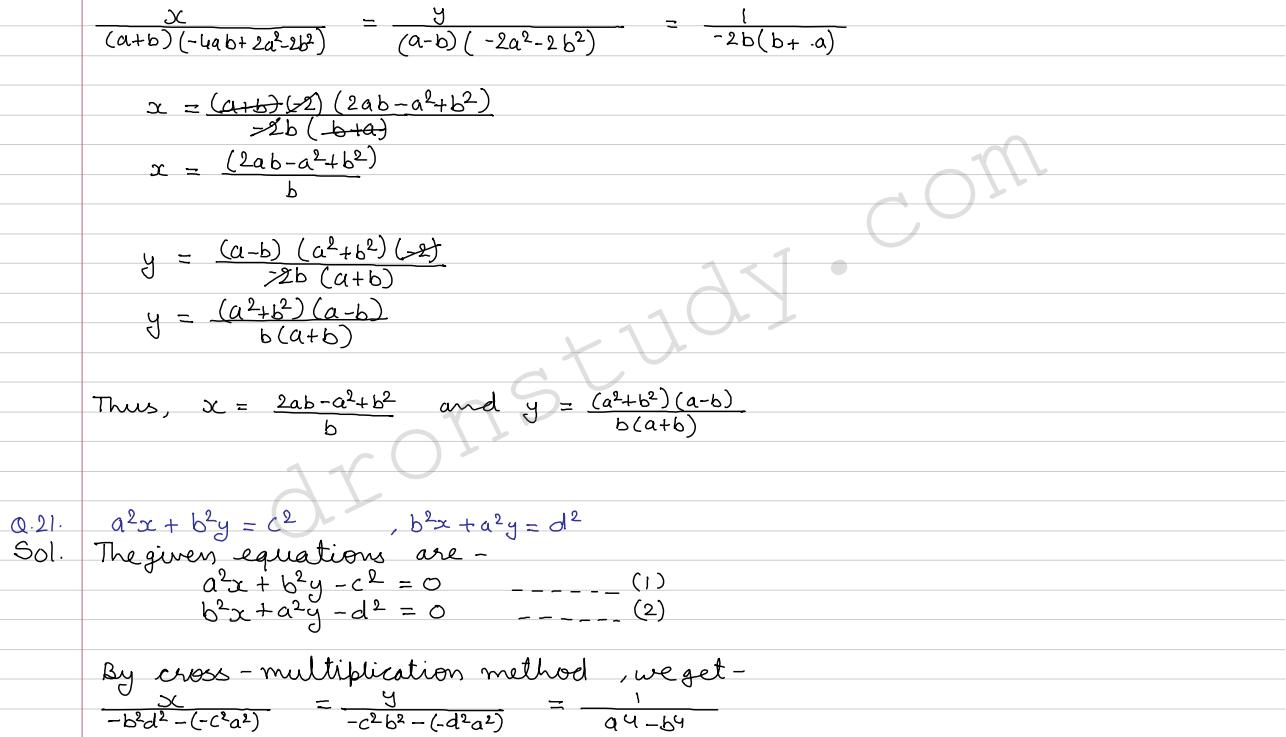 x/((a+b)(-4ab+2a²-2b²)) = y/((a-b)(-2a²-2b²)) = 1/(-2b(b+a))
x = (a+b)(-2)(2ab-a²+b²)/(-2b(b+a))
x = (2ab-a²+b²)/b
y = (a-b)(a²+b²)(-2)/(-2b(a+b))
y = (a²+b²)(a-b)/(b(a+b))
Thus, x = (2ab-a²+b²)/b and y = (a²+b²)(a-b)/(b(a+b))
Q.21. a²x + b²y = c² , b²x + a²y = d²
Sol. The given equations are -
a²x + b²y - c² = 0 ------ (1)
b²x + a²y - d² = 0 ------ (2)
By cross-multiplication method, we get -
x/(-b²d²-(-c²a²)) = y/(-c²b²-(-d²a²)) = 1/(a4-b4)
dronstudy.com